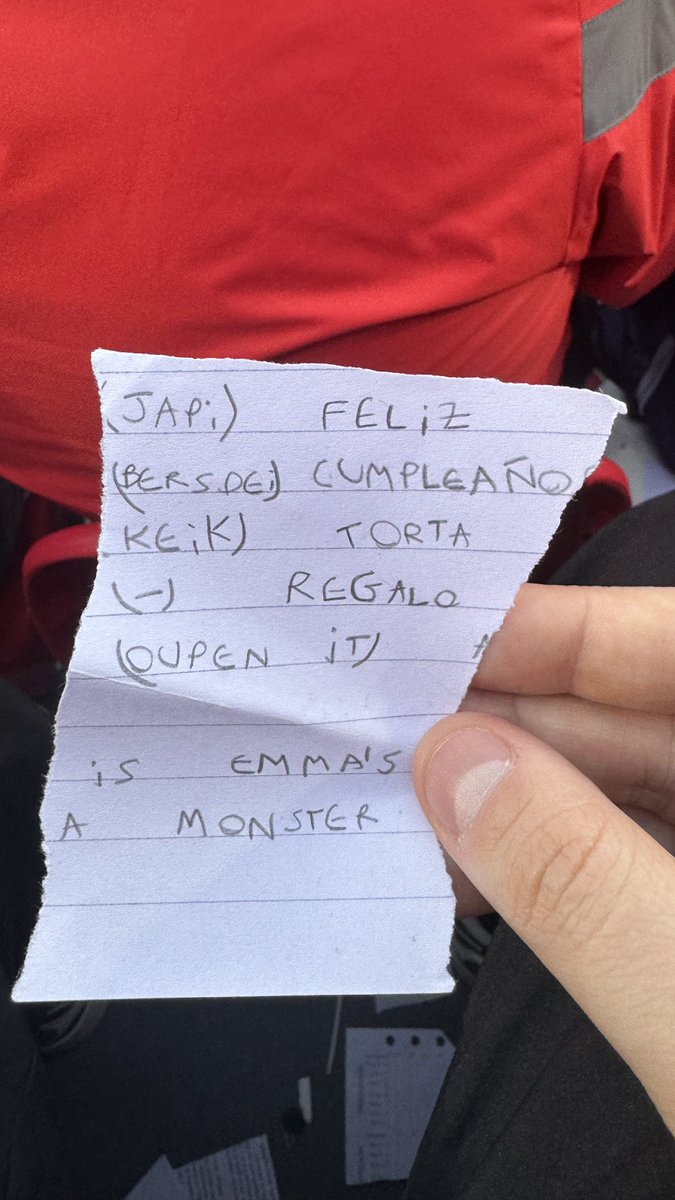 (JAPi) FELiZ
(BERSDEi) CUMPLEAÑO
KEiK) TORTA
(-) REGALO
(OUPEN iT)
is EMMA'S
A MONSTER